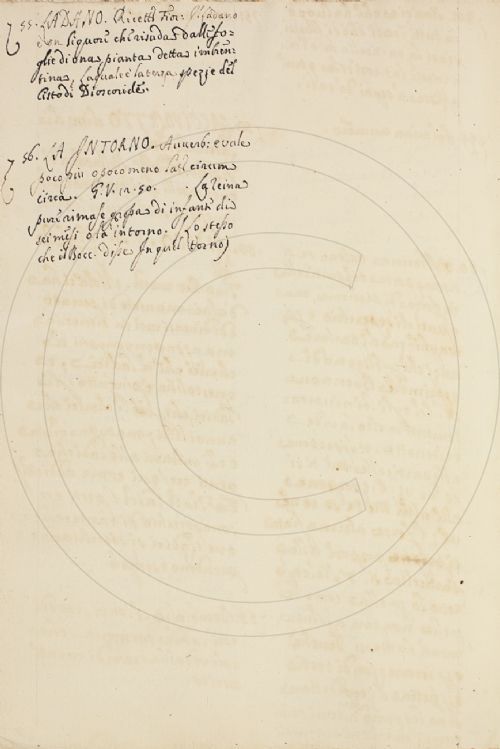 55. LADANO. Ricett: Fior: Il ladano
è un liquore che risuda dalle fo-
glie di una pianta detta imbren-
tina, la quale è la terza spezie del
Cisto di Dioscoride.
56. LÀ INTORNO. Avverb: e vale
poco più o poco meno. Lat: circum
circa. G. V. 12. 50. La reina
pure rimase grossa di infante di
sei mesi o là intorno. (Lo stesso
che il Bocc. disse In quel torno)